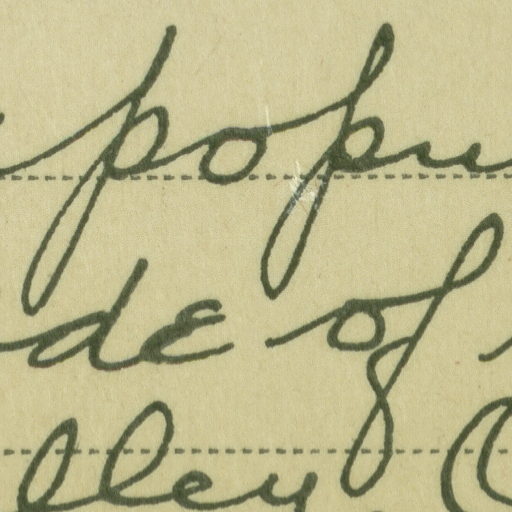 popu
de of
lley